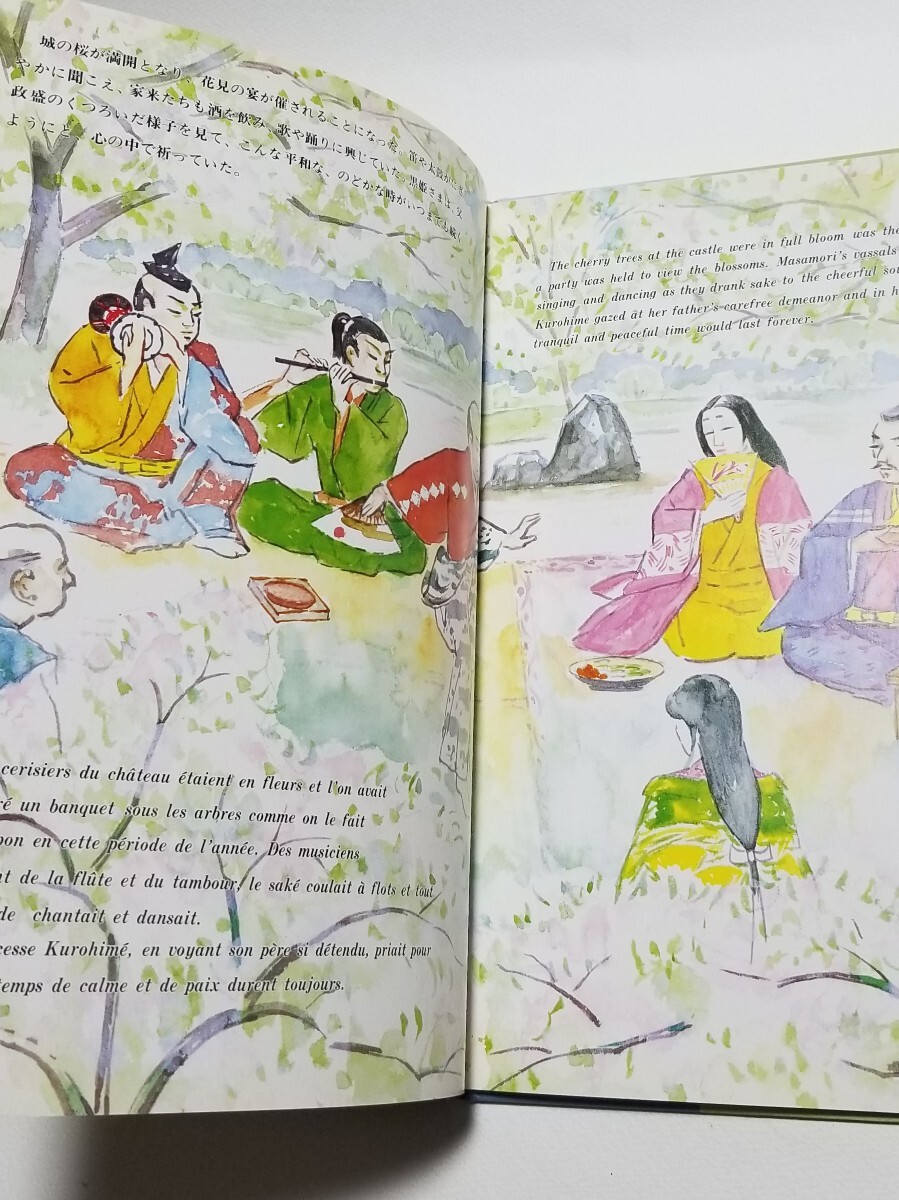 城の桜が満開となり、花見の宴が催されることになった。笛や太鼓がにぎ
やかに聞こえ、家来たちも酒を飲み、歌や踊りに興じていた。黒姫さまは、父
政盛のくつろいだ様子を見て、こんな平和な、のどかな時がいつまでも続く
ようにと、心の中で祈っていた。
The cherry trees at the castle were in full bloom was the
a party was held to view the blossoms. Masamori's vassals
singing and dancing as they drank sake to the cheerful
Kurohime gazed ât her father's carefree demeanor and in
tranquil and peaceful time would last forever.
cerisiers du château étaient en fleurs et l'on avait
un banquet sous les arbres comme on le fait
en cette période de l'année. Des musiciens
de la flûte et du tambour, le saké coulait à flots et tout
chantait et dansait.
Kurohimé, en voyant son père si détendu, priait pour
temps de calme et de paix durent toujours.